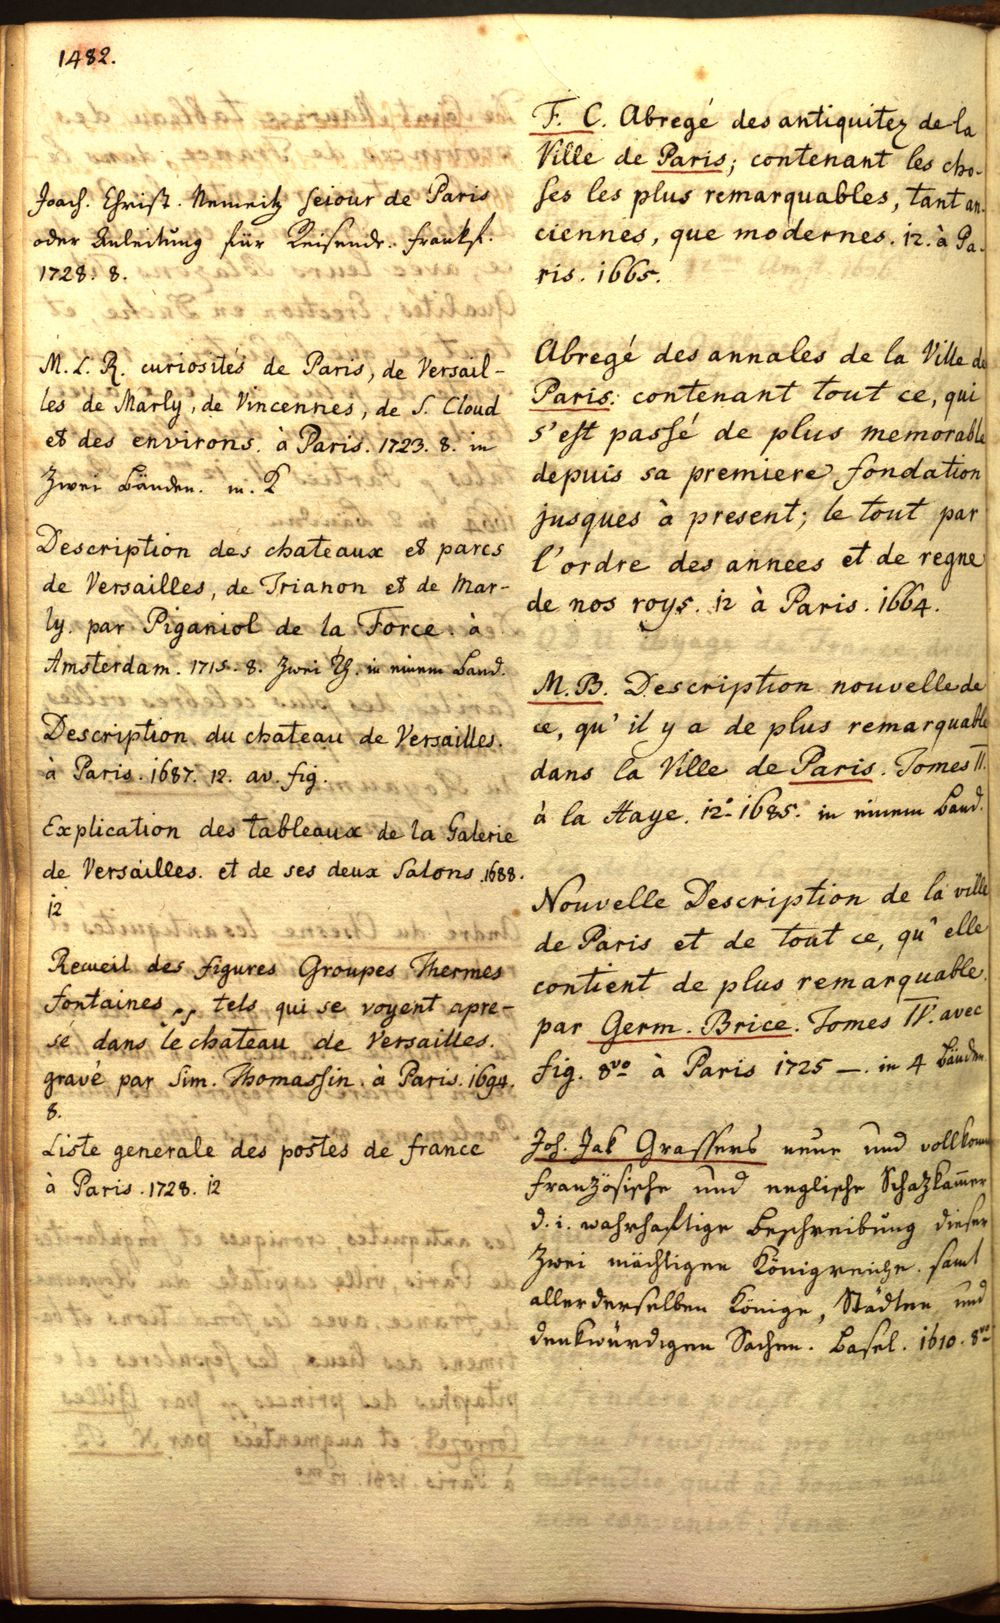 1482.
Joach. Christ. Nemeitz sejour de Paris
oder Anleitung für Reisende. Frankf.
1728. 8.
M. L. R. curiosités de Paris, de Versail-
les de Marly, de Vincennes, de S. Cloud
et des environs. à Paris. 1723. 8. in
Zwei Bänden. m. K
Description des chateaux et parcs
de Versailles, de Trianon et de Mar-
ly. par Piganiol de la Force. à
Amsterdam. 1715. 8. Zwei Th. in einem Band.
Description du chateau de Versailles.
à Paris. 1687. 12. av. fig.
Explication des tableaux de la Galerie
de Versailles. et de ses deux Salons. 1688.
12
Recueil des figures Groupes Thermes
fontaines,, tels qui se voyent apre-
sé dans le chateau de Versailles.
gravé par Sim. Thomassin. à Paris. 1694.
8.
Liste generale des postes de france
à Paris. 1728. 12
F. C. Abregé des antiquitez de la
Ville de Paris; contenant les cho-
ses les plus remarquables, tant an-
ciennes, que modernes. 12. à Pa-
ris. 1665.
Abregé des annales de la Ville de
Paris: contenant tout ce, qui
s'est passé de plus memorable
depuis sa premiere fondation
jusques à present; le tout par
l'ordre des annees et de regne
de nos roys. 12 à Paris. 1664.
M. B. Description nouvelle de
ce, qu'il y a de plus remarquable
dans la Ville de Paris. Tomes II.
à la Haye. 12° 1685. in einem Band.
Nouvelle Description de la ville
de Paris et de tout ce, qu'elle
contient de plus remarquable.
par Germ. Brice. Tomes IV. avec
fig. 8vo à Paris 1725 —. in 4 Bänden
Joh. Jak Grassers neue und vollkomm
französische und englische Schatzkam̅er
d. i. wahrhaftige Beschreibung dieser
Zwei mächtigen Königreiche. samt
aller derselben Könige, Städten und
denkwürdigen Sachen. Basel. 1610. 8vo